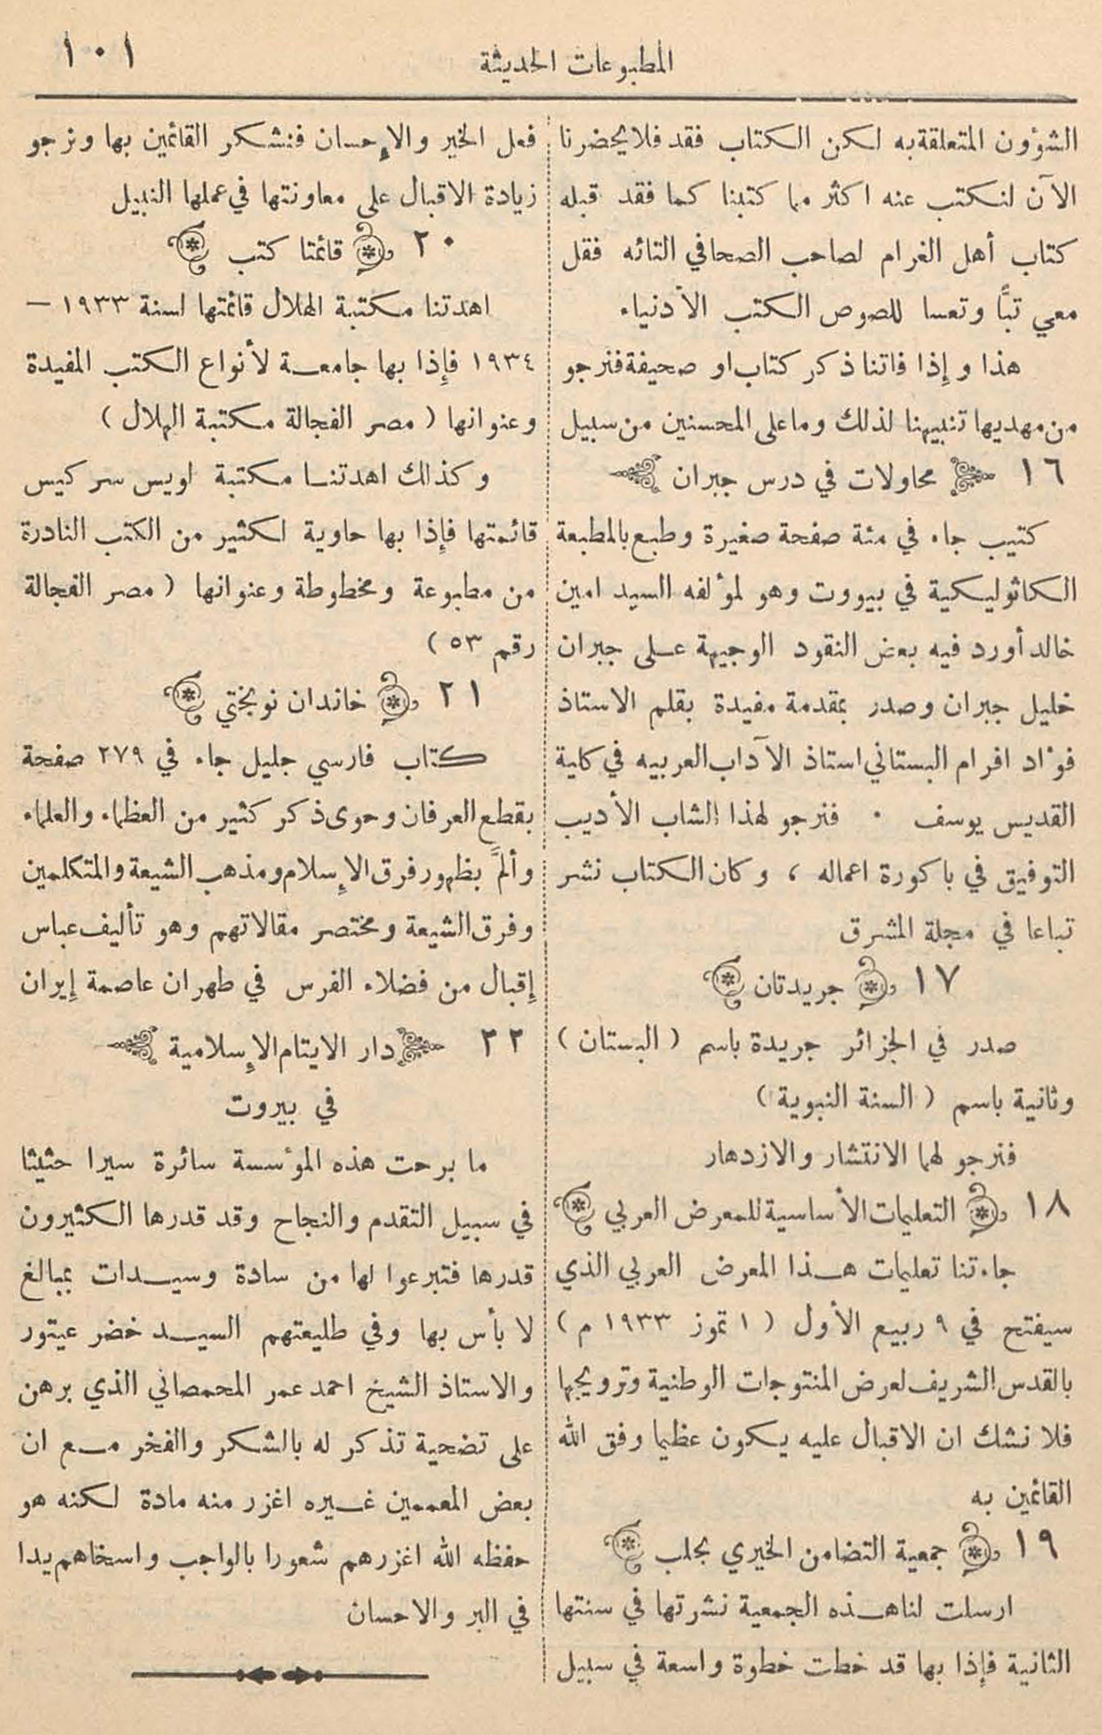 المطبوعات الحديثة
١٠١
الشؤون المتعلقة به لكن الكتاب فقد فلا يحضرنا
الآن لنكتب عنه اكثر مما كتبنا كما فقد قبله
كتاب أهل الغرام لصاحب الصحافي التائه فقل
معي تبًّا وتعسا للصوص الكتب الأدنياء
هذا وإذا فاتنا ذكر كتاب او صحيفة فنرجو
من مهديها تنبيهنا لذلك وما على المحسنين من سبيل
١٦ محاولات في درس جبران
كتيب جاء في مئة صفحة صغيرة وطبع بالمطبعة
الكاثوليكية في بيروت وهو لمؤلفه السيد امين
خالد أورد فيه بعض النقود الوجيهة على جبران
خليل جبران وصدر بمقدمة مفيدة بقلم الاستاذ
فؤاد افرام البستاني استاذ الآداب العربيه في كلية
القديس يوسف . فنرجو لهذا الشاب الأديب
التوفيق في باكورة اعماله ، وكان الكتاب نشر
تباعا في مجلة المشرق
١٧ جريدتان
صدر في الجزائر جريدة باسم ( البستان )
وثانية باسم ( السنة النبوية )
فنرجو لهما الانتشار والازدهار
١٨ التعليمات الأساسية للمعرض العربي
جاءتنا تعليمات هذا المعرض العربي الذي
سيفتح في ٩ ربيع الأول ( ١ تموز ١٩٣٣ م )
بالقدس الشريف لعرض المنتوجات الوطنية وترويجها
فلا نشك ان الاقبال عليه يكون عظيما وفق الله
القائمين به
١٩ جمعية التضامن الخيري بحلب
ارسلت لنا هذه الجمعية نشرتها في سنتها
الثانية فإذا بها قد خطت خطوة واسعة في سبيل
فعل الخير والإحسان فنشكر القائمين بها ونرجو
زيادة الاقبال على معاونتها في عملها النبيل
٢٠ قائمتا كتب
اهدتنا مكتبة الهلال قائمتها لسنة ١٩٣٣ –
١٩٣٤ فإذا بها جامعة لأنواع الكتب المفيدة
وعنوانها ( مصر الفجالة مكتبة الهلال )
وكذلك اهدتنا مكتبة اويس سركيس
قائمتها فإذا بها حاوية لكثير من الكتب النادرة
من مطبوعة ومخطوطة وعنوانها ( مصر الفجالة
رقم ٥٣ )
٢١ خاندان نوبختي
كتاب فارسي جليل جاء في ٢٧٩ صفحة
بقطع العرفان وحوى ذكر كثير من العظماء والعلماء
وألمَّ بظهور فرق الإسلام ومذهب الشيعة والمتكلمين
وفرق الشيعة ومختصر مقالاتهم وهو تأليف عباس
إقبال من فضلاء الفرس في طهران عاصمة إيران
٢٢ دار الايتام الإسلامية
في بيروت
ما برحت هذه المؤسسة سائرة سيرا حثيثا
في سبيل التقدم والنجاح وقد قدرها الكثيرون
قدرها فتبرعوا لها من سادة وسيدات بمبالغ
لا بأس بها وفي طليعتهم السيد خضر عيتور
والاستاذ الشيخ احمد عمر المحمصاني الذي برهن
على تضحية تذكر له بالشكر والفخر مع ان
بعض المعممين غيره اغزر منه مادة لكنه هو
حفظه الله اغزرهم شعورا بالواجب واسخاهم يدا
في البر والاحسان